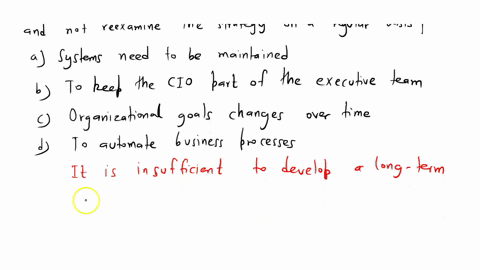 and not reexamine the strategy on a regular basis?
a) Systems need to be maintained
b) To keep the CIO part of the executive team
c) Organizational goals changes over time
d) To automate business processes
It is insufficient to develop a long-term